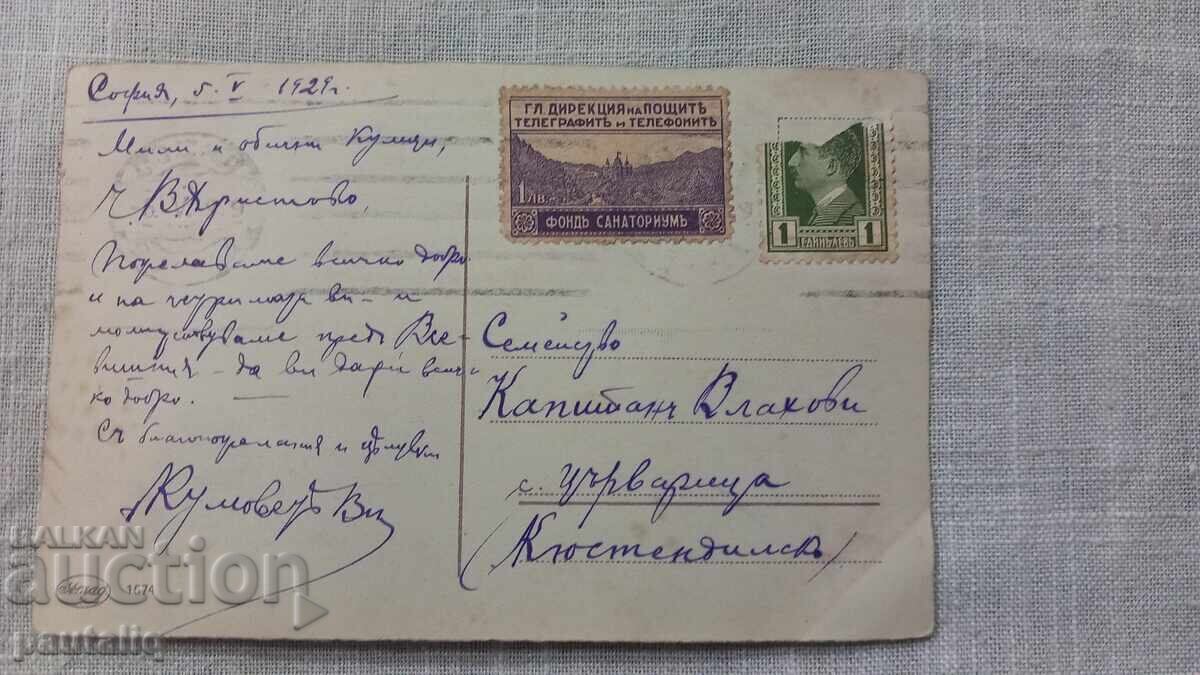 София, 5. V 1929 г.
Мили и обични Кумци,
Ч В. Христово,
Пожелаваме всичко добро
и на ви - и
предъ Все-
вишния - да ви дари всич-
ко добро.
Съ благопожелания и цѣлувки
Кумоветѣ Ви
1674
ГЛ ДИРЕКЦИЯ НА ПОЩИТѢ
ТЕЛЕГРАФИТѢ И ТЕЛЕФОНИТѢ
1 ЛВ.
ФОНДЪ САНАТОРИУМЪ
1 ЕДИНЪ ЛЕВЪ 1
Семейство
Капитанъ Влахови
с. Църварица
(Кюстендилско)
BALKAN
auction
pautaliq